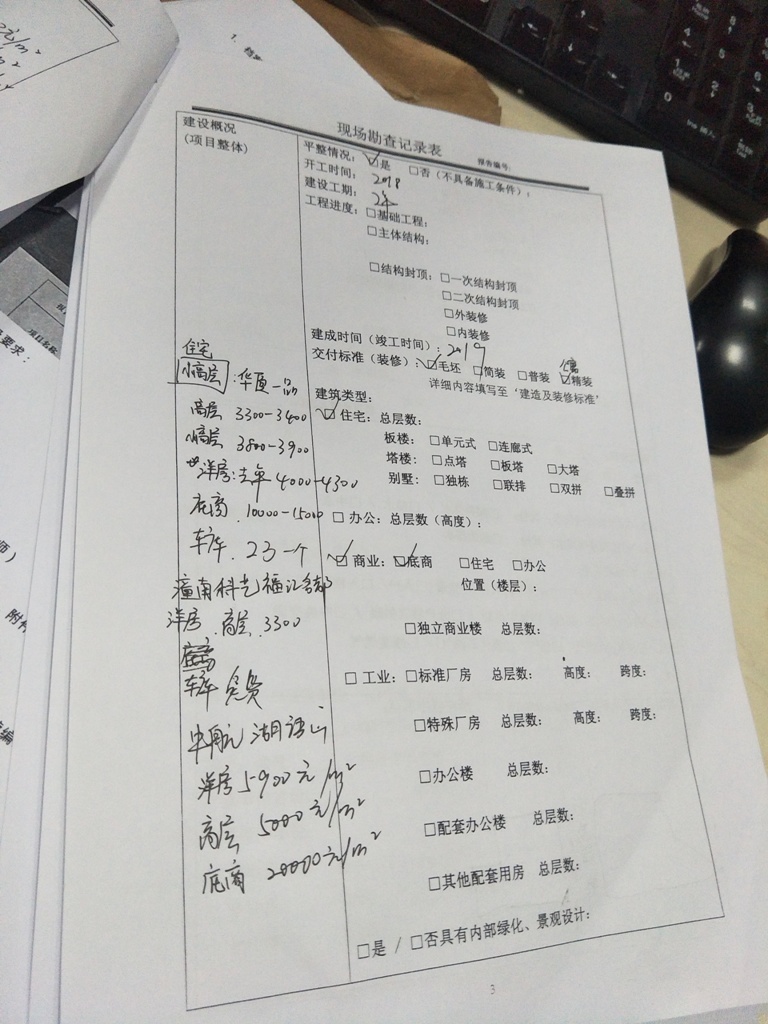 现场勘查记录表
报告编号:
建设概况
(项目整体)
平整情况: ☑是 □否(不具备施工条件):
开工时间: 2018
建设工期: 2年
工程进度: □基础工程:
□主体结构:
□结构封顶: □一次结构封顶
□二次结构封顶
□外装修
□内装修
建成时间(竣工时间): 2019
交付标准(装修): ☑毛坯 □简装 □普装 ☑精装
详细内容填写至‘建造及装修标准’
建筑类型:
☑住宅: 总层数:
板楼: □单元式 □连廊式
塔楼: □点塔 □板塔 □大塔
别墅: □独栋 □联排 □双拼 □叠拼
□办公: 总层数(高度):
☑商业: ☑底商 □住宅 □办公
位置(楼层):
□独立商业楼 总层数:
□工业: □标准厂房 总层数: 高度: 跨度:
□特殊厂房 总层数: 高度: 跨度:
□办公楼 总层数:
□配套办公楼 总层数:
□其他配套用房 总层数:
□是 / □否具有内部绿化、景观设计:
住宅
小高层: 华夏一品
高层 3300-3400
小高层 3800-3900
洋房: 4000-4300
底商 10000-15000
车库 . 23一个
潼南科光
洋房 . 高层 . 3300
车库 免费
中航 湖
洋房 5900元/m²
高层 5000元/m²
底商 20000元/m²
3
元/m²
要求:
项目名称
师)
附件
编
0